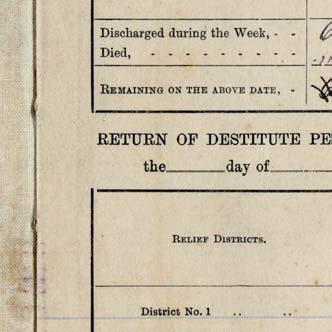 Discharged during the Week, - -
Died, - - - - - - -
REMAINING ON THE ABOVE DATE, -
RETURN OF DESTITUTE PE
the________day of
RELIEF DISTRICTS.
District No. 1 .. ..